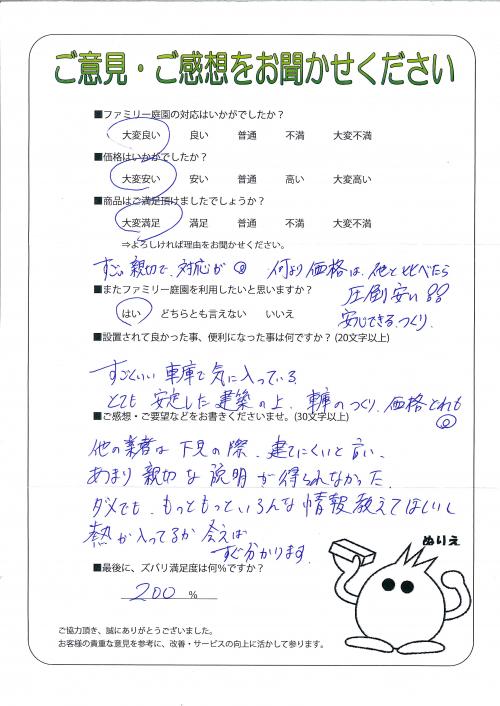 ご意見・ご感想をお聞かせください
■ファミリー庭園の対応はいかがでしたか？
大変良い 良い 普通 不満 大変不満
■価格はいかがでしたか？
大変安い 安い 普通 高い 大変高い
■商品はご満足頂けましたでしょうか？
大変満足 満足 普通 不満 大変不満
⇒よろしければ理由をお聞かせください。
すごい親切で、対応が◎ 何より価格は、他と比べたら
圧倒安い!!
安心できるつくり。
■またファミリー庭園を利用したいと思いますか？
はい どちらとも言えない いいえ
■設置されて良かった事、便利になった事は何ですか？(20文字以上)
すごくいい車庫で気に入っている。
とても安定した建築の上、車庫のつくり、価格どれも
◎
■ご感想・ご要望などをお書きくださいませ。(30文字以上)
他の業者は下見の際、建てにくいと言い、
あまり親切な説明が得られなかった。
ダメでも、もっともっといろんな情報教えてほしいし
熱が入ってるか会えば
すぐ分かります。
■最後に、ズバリ満足度は何％ですか？
200 ％
ぬりえ
ご協力頂き、誠にありがとうございました。
お客様の貴重な意見を参考に、改善・サービスの向上に活かして参ります。